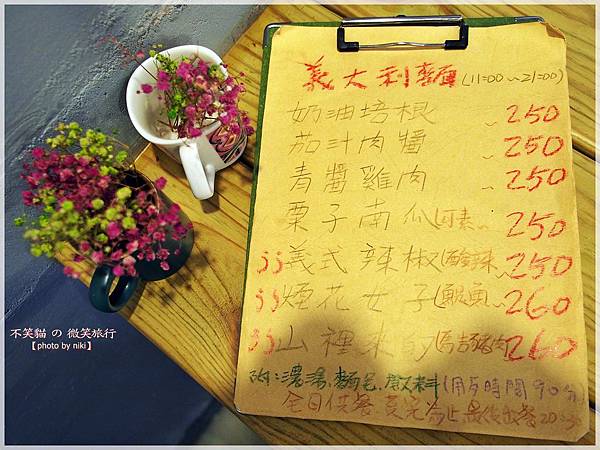 義大利麵(11:00~21:00)
奶油培根 ~250
茄汁肉醬 ~250
青醬雞肉 ~250
栗子南瓜(可素~250
義式辣椒(酸辣~250
煙花女子(鯷魚~260
山裡來 260
附:濃湯.麵包.飲料(用餐時間90分)
全日供餐.賣完為止 最後 20:
不笑貓 の 微笑旅行
【photo by niki】